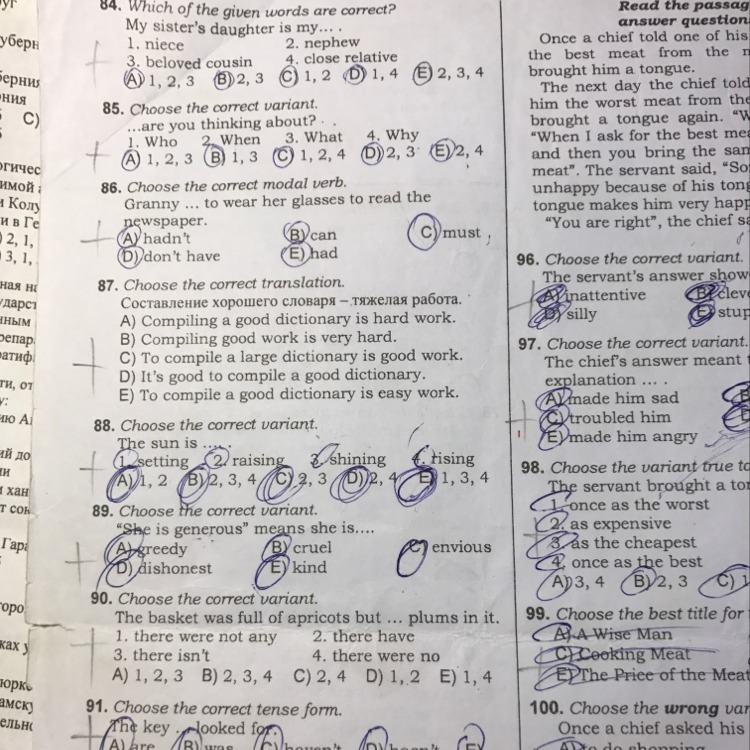 84. Which of the given words are correct?
My sister's daughter is my... .
1. niece 2. nephew
3. beloved cousin 4. close relative
A) 1, 2, 3 B) 2, 3 C) 1, 2 D) 1, 4 E) 2, 3, 4
85. Choose the correct variant.
...are you thinking about?
1. Who 2. When 3. What 4. Why
A) 1, 2, 3 B) 1, 3 C) 1, 2, 4 D) 2, 3 E) 2, 4
86. Choose the correct modal verb.
Granny ... to wear her glasses to read the
newspaper.
A) hadn't B) can C) must
D) don't have E) had
87. Choose the correct translation.
Составление хорошего словаря – тяжелая работа.
A) Compiling a good dictionary is hard work.
B) Compiling good work is very hard.
C) To compile a large dictionary is good work.
D) It's good to compile a good dictionary.
E) To compile a good dictionary is easy work.
88. Choose the correct variant.
The sun is ... .
1. setting 2. raising 3. shining 4. rising
A) 1, 2 B) 2, 3, 4 C) 2, 3 D) 2, 4 E) 1, 3, 4
89. Choose the correct variant.
"She is generous" means she is....
A) greedy B) cruel C) envious
D) dishonest E) kind
90. Choose the correct variant.
The basket was full of apricots but ... plums in it.
1. there were not any 2. there have
3. there isn't 4. there were no
A) 1, 2, 3 B) 2, 3, 4 C) 2, 4 D) 1, 2 E) 1, 4
91. Choose the correct tense form.
The key ... looked for.
A) are B) was C) haven't D) E)
Read the passag
answer question
Once a chief told one of his
the best meat from the
brought him a tongue.
The next day the chief told
him the worst meat from the
brought a tongue again. "W
"When I ask for the best mea
and then you bring the sam
meat". The servant said, "So
unhappy because of his tong
tongue makes him very happ
"You are right", the chief sa
96. Choose the correct variant.
The servant's answer show
A) inattentive B) cleve
D) silly E) stup
97. Choose the correct variant.
The chief's answer meant
explanation ... .
A) made him sad B
C) troubled him D
E) made him angry
98. Choose the variant true to
The servant brought a ton
1. once as the worst
2. as expensive
3. as the cheapest
4. once as the best
A) 3, 4 B) 2, 3 C) 1
99. Choose the best title for
A) A Wise Man
C) Cooking Meat
E) The Price of the Meat
100. Choose the wrong var
Once a chief asked his
to do shopping